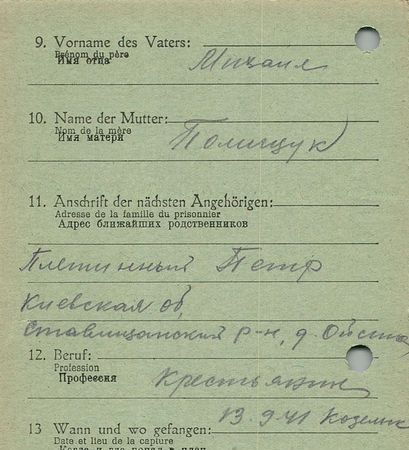 9. Vorname des Vaters:
Prénom du père
Имя отца
Михаил
10. Name der Mutter:
Nom de la mère
Имя матери
Полищук
11. Anschrift der nächsten Angehörigen:
Adresse de la famille du prisonnier
Адрес ближайших родственников
Плетинный Петр
Киевская об,
Ставищанский р-н, д.
12. Beruf:
Profession
Профессия
Крестьянин
13.9.41 Козелец
13 Wann und wo gefangen:
Date et lieu de la capture
Когда и где попал в плен